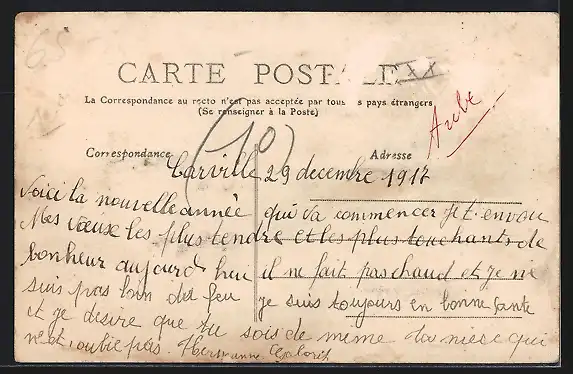 65
CARTE POSTALE
La Correspondance au recto n'est pas acceptée par tous s pays étrangers
(Se renseigner à la Poste)
(10)
Aube
Correspondance
Adresse
Carville 29 decembre 1917
Voici la nouvelle année qui va commencer je t'envou
Mes vœuse les plus tendre et les plus touchants de
bonheur aujourd heu il ne fait pas chaud et je ne
suis pas loin des feu je suis toujours en bonne sante
et je desire que tu sois de meme ta niese qui
nest oublie pas. Hermanne